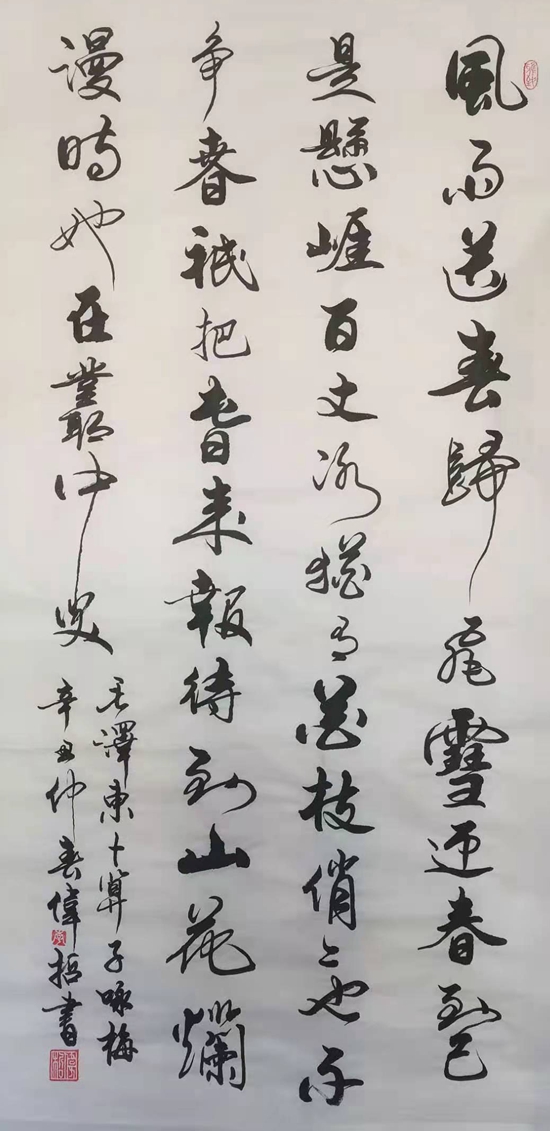 風雨送春歸飛雪迎春到已
是懸崖百丈冰猶有花枝俏〻也不
争春祇把春来報待到山花爛
漫時她在叢中笑
毛澤東卜算子咏梅
辛丑仲春偉哲書